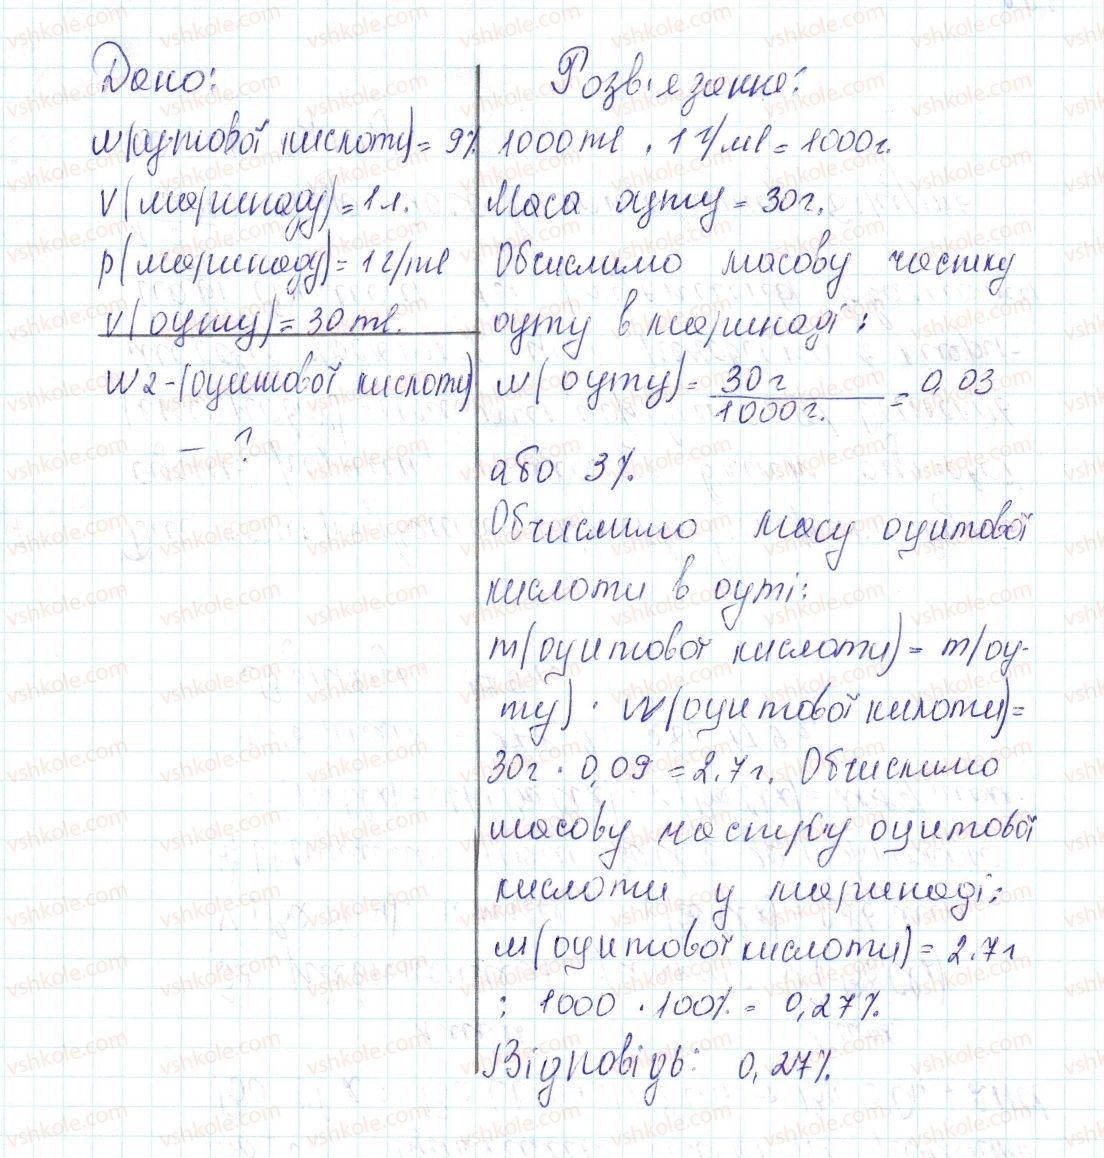 Дано:
w(оцтової кислоти) = 9%
V(маринаду) = 1 л.
p(маринаду) = 1 г/ml
V(оцту) = 30 ml.
W2-(оцитової кислоти)
– ?
Розв'язання:
1000 ml · 1 г/мl = 1000 г.
Маса оцту = 30 г.
Обчислимо масову частку
оцту в маринаді:
w(оцту) = 30 г / 1000 г. = 0,03
або 3%.
Обчислимо масу оцитової
кислоти в оцті:
m(оцитової кислоти) = m(оц-
ту) · W(оцитової килоти) =
30 г · 0,09 = 2.7 г. Обчислимо
масову частку оцитової
кислоти у маринаді:
w(оцитової кислоти) = 2.7 г
: 1000 · 100% = 0,27%.
Відповідь: 0,27%.
vshkole.com